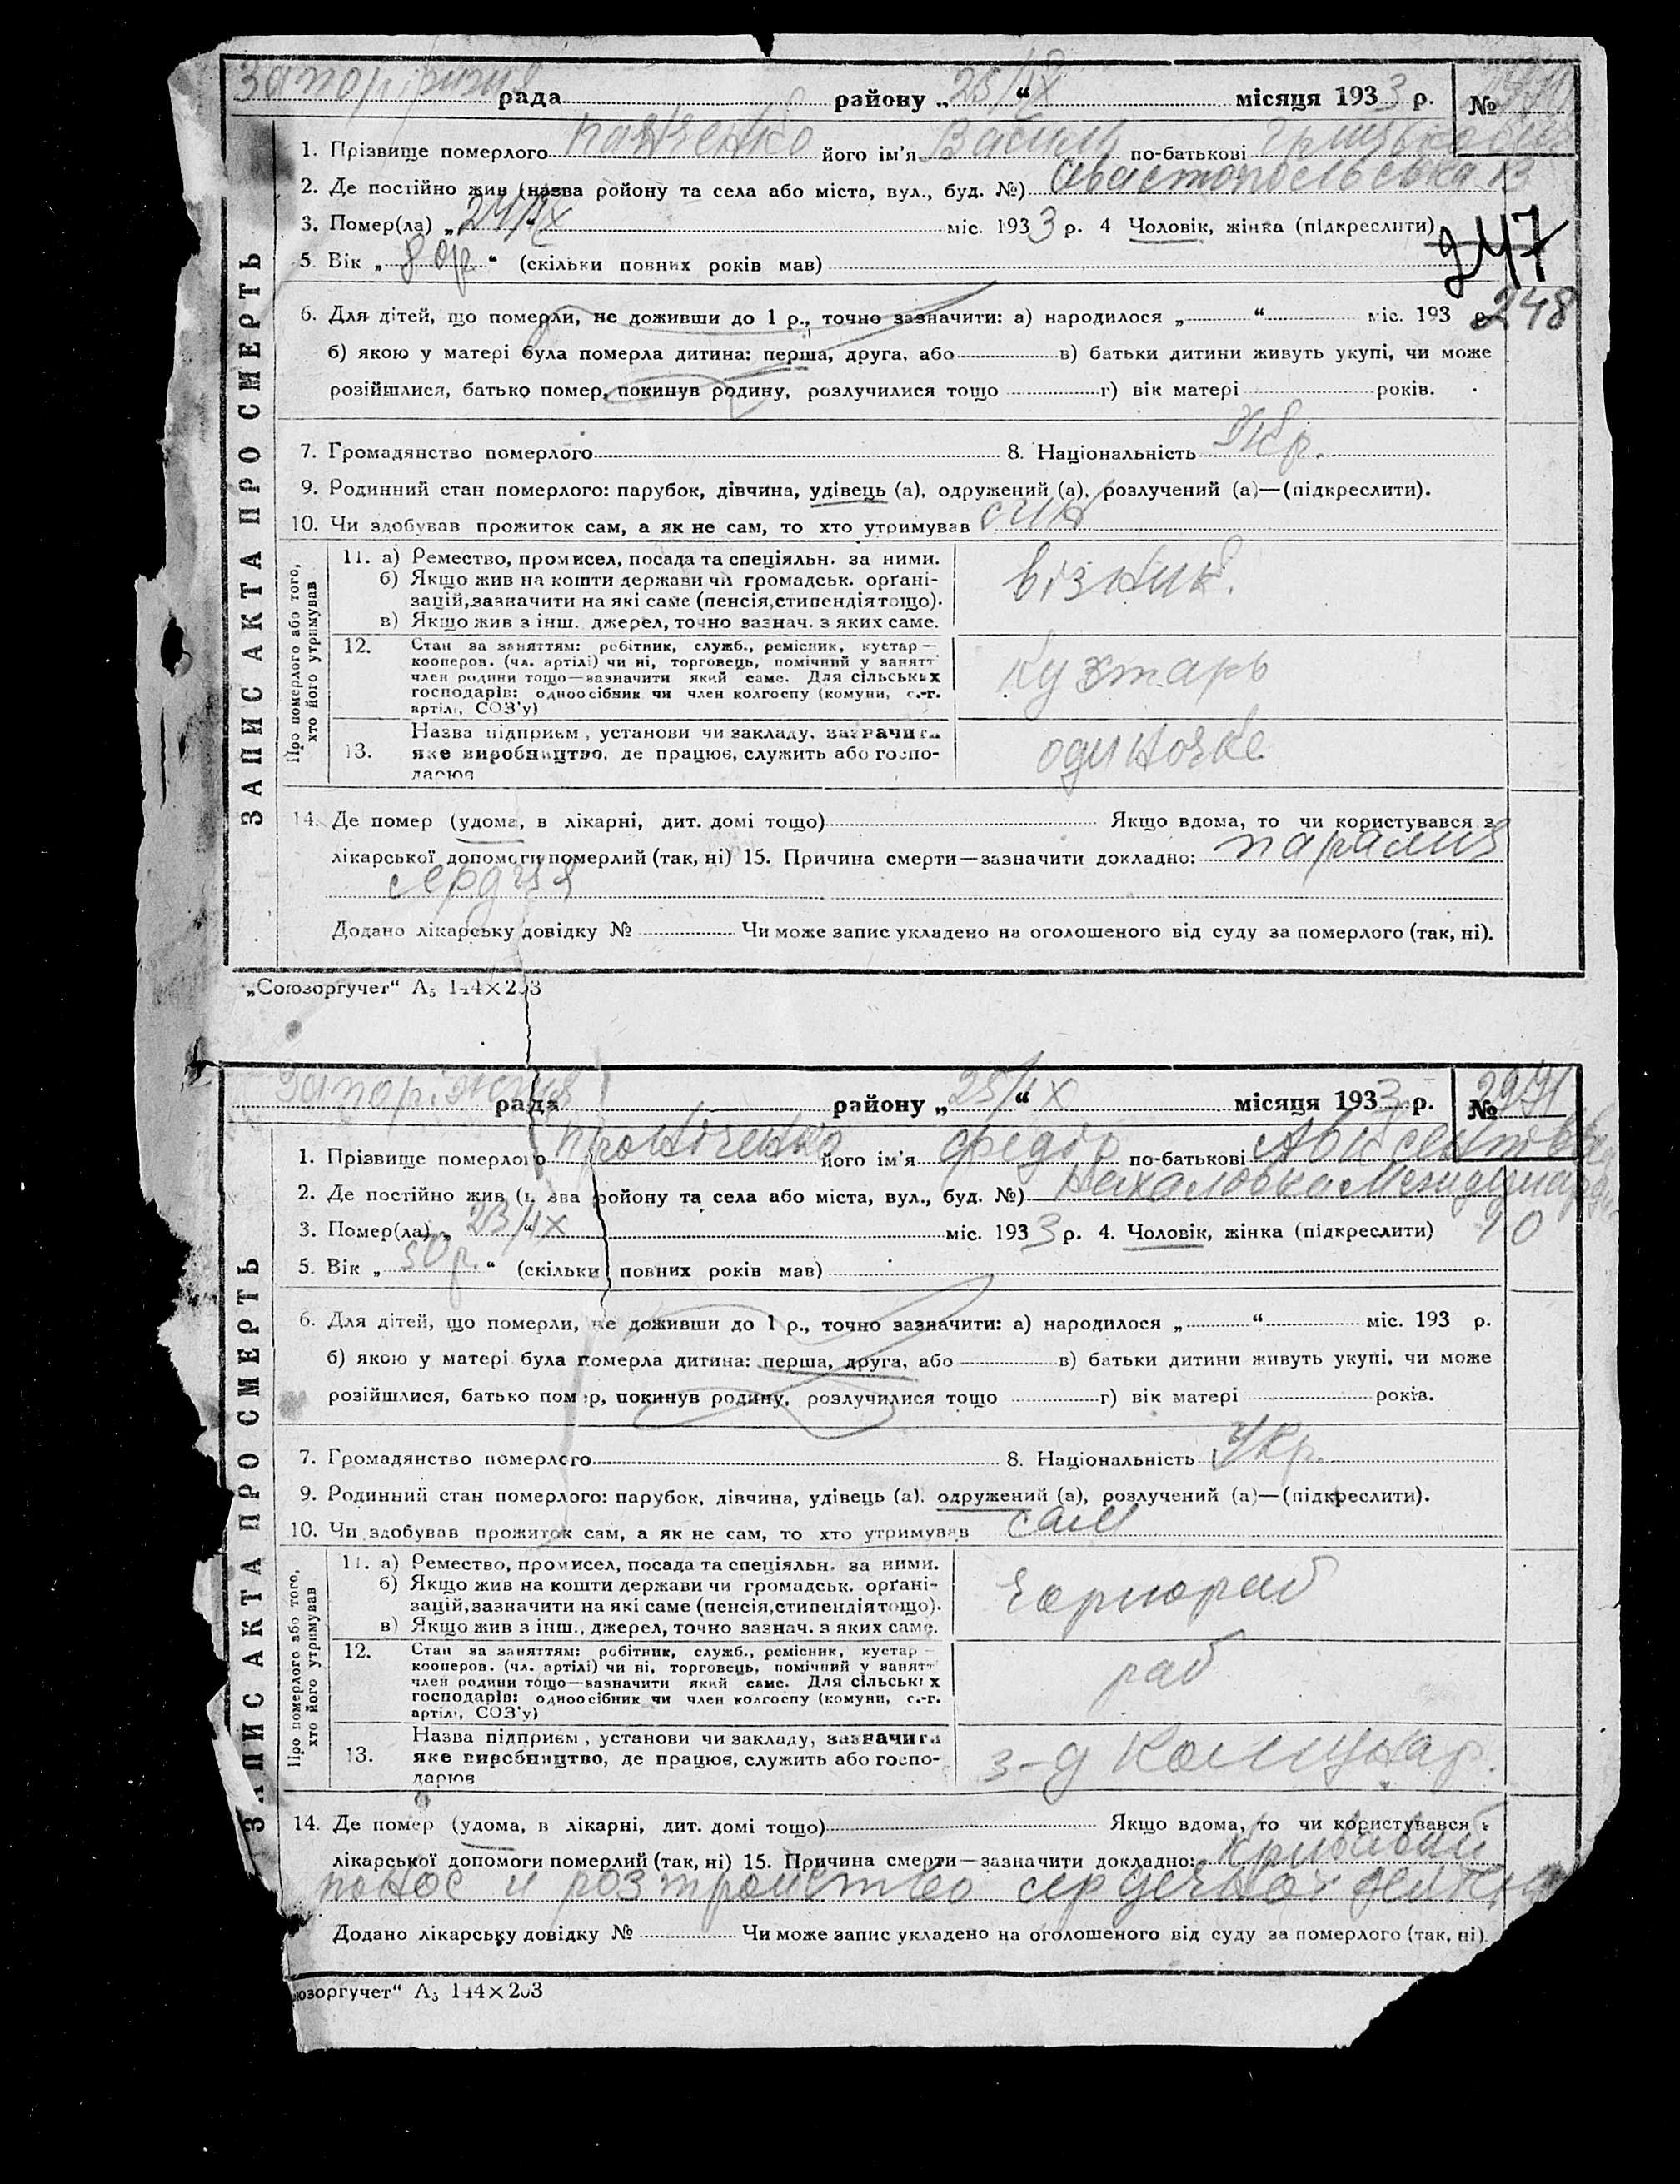 рада району „25/IX“ місяця 1933 р. №
1. Прізвище померлого його ім'я Василь по-батькові
2. Де постійно жив (назва району та села або міста, вул., буд. №) Севастопольська 13
3. Помер(ла) „24/IX“ міс. 1933 р. 4 Чоловік, жінка (підкреслити)
247
5. Вік „80р.“ (скільки повних років мав)
248
6. Для дітей, що померли, не доживши до 1 р., точно зазначити: а) народилося „ “ міс. 193 р.
б) якою у матері була померла дитина: перша, друга, або в) батьки дитини живуть укупі, чи може
розійшлися, батько помер, покинув родину, розлучилися тощо г) вік матері років.
7. Громадянство померлого 8. Національність Укр.
9. Родинний стан померлого: парубок, дівчина, удівець (а), одружений (а), розлучений (а)—(підкреслити).
10. Чи здобував прожиток сам, а як не сам, то хто утримував син
ЗАПИС АКТА ПРО СМЕРТЬ
Про померлого або того,
хто його утримував
11. а) Ремество, промисел, посада та спеціяльн. за ними.
б) Якщо жив на кошти держави чи громадськ. орґані-
зацій, зазначити на які саме (пенсія, стипендія тощо).
в) Якщо жив з інш. джерел, точно зазнач. з яких саме.
візник.
12. Стан за заняттям: робітник, служб., ремісник, кустар—
кооперов. (чл. артілі) чи ні, торговець, помічний у занятт
член родини тощо—зазначити який саме. Для сільських
господарів: одноосібник чи член колгоспу (комуни, с.-г.
артілі, СОЗ'у)
кустарь
13. Назва підприєм., установи чи закладу, зазначити
яке виробництво, де працює, служить або госпо-
дарює
одиночка
14. Де помер (удома, в лікарні, дит. домі тощо) Якщо вдома, то чи користувався з
лікарської допомоги померлий (так, ні) 15. Причина смерти—зазначити докладно: параліч
сердця
Додано лікарську довідку № Чи може запис укладено на оголошеного від суду за померлого (так, ні).
„Союзоргучет“ А5 144×203
Запоріжжя рада району „25/IX“ місяця 1933 р. № 2991
1. Прізвище померлого його ім'я Федір по-батькові
2. Де постійно жив (назва району та села або міста, вул., буд. №) Нахаловка
3. Помер(ла) „23/IX“ міс. 1933 р. 4. Чоловік, жінка (підкреслити) 10
5. Вік „50р.“ (скільки повних років мав)
6. Для дітей, що померли, не доживши до 1 р., точно зазначити: а) народилося „ “ міс. 193 р.
б) якою у матері була померла дитина: перша, друга, або в) батьки дитини живуть укупі, чи може
розійшлися, батько помер, покинув родину, розлучилися тощо г) вік матері років.
7. Громадянство померлого 8. Національність Укр.
9. Родинний стан померлого: парубок, дівчина, удівець (а), одружений (а), розлучений (а)—(підкреслити).
10. Чи здобував прожиток сам, а як не сам, то хто утримував сам
ЗАПИС АКТА ПРО СМЕРТЬ
Про померлого або того,
хто його утримував
11. а) Ремество, промисел, посада та спеціяльн. за ними.
б) Якщо жив на кошти держави чи громадськ. орґані-
зацій, зазначити на які саме (пенсія, стипендія тощо).
в) Якщо жив з інш. джерел, точно зазнач. з яких саме.
чорнораб
12. Стан за заняттям: робітник, служб., ремісник, кустар—
кооперов. (чл. артілі) чи ні, торговець, помічний у занятт
член родини тощо—зазначити який саме. Для сільських
господарів: одноосібник чи член колгоспу (комуни, с.-г.
артілі, СОЗ'у)
раб
13. Назва підприєм., установи чи закладу, зазначити
яке виробництво, де працює, служить або госпо-
дарює
з-д Комунар.
14. Де помер (удома, в лікарні, дит. домі тощо) Якщо вдома, то чи користувався з
лікарської допомоги померлий (так, ні) 15. Причина смерти—зазначити докладно: кривавий
понос и розтройство сердечной
Додано лікарську довідку № Чи може запис укладено на оголошеного від суду за померлого (так, ні).
юзоргучет“ А5 144×203